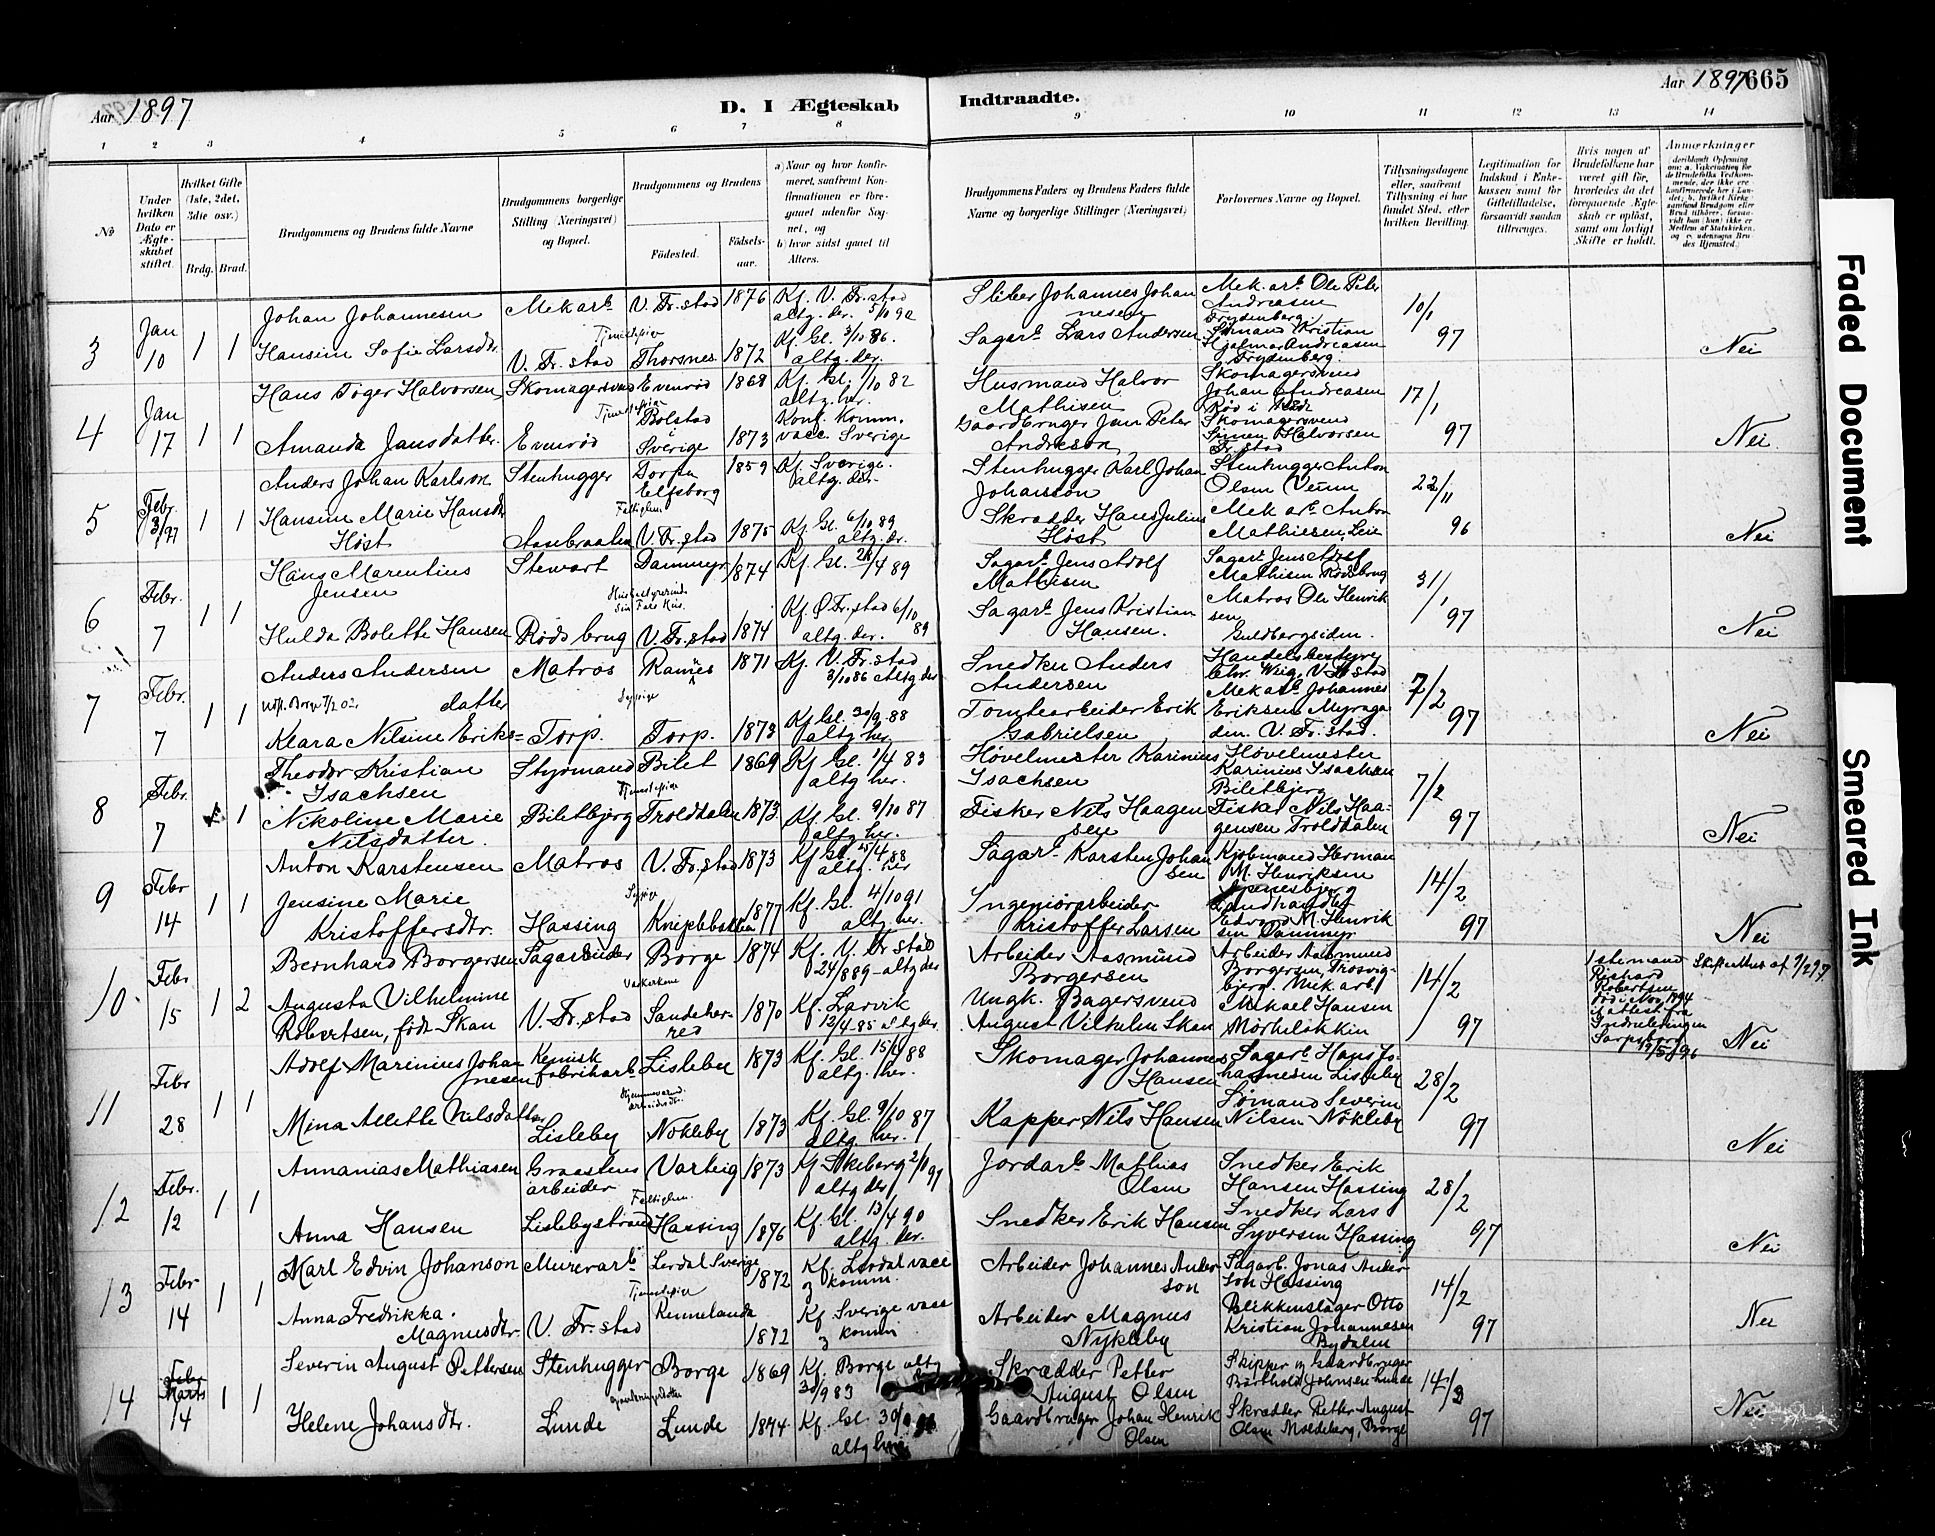 Aar 1897
D. I Ægteskab
Indtraadte.
Aar 1897 665
1 2 3 4 5 6 7 8 9 10 11 12 13 14
No
Under hvilken Dato er Ægteskabet stiftet.
Hvilket Gifte (1ste, 2det, 3die osv.)
Brdg. Brud.
Brudgommens og Brudens fulde Navne
Brudgommens borgerlige Stilling (Næringsvei) og Bopæl.
Brudgommens og Brudens
Fødested.
Fødselsaar.
a) Naar og hvor konfirmeret, saafremt Konfirmationen er foregaaet udenfor Sognet, og
b) hvor sidst gaaet til Alters.
Brudgommens Faders og Brudens Faders fulde Navne og borgerlige Stillinger (Næringsvei)
Forlovernes Navne og Bopæl.
Tillysningsdagene eller, saafremt Tillysning ei har fundet Sted, efter hvilken Bevilling.
Legitimation for Indskud i Enkekassen samt for Giftetilladelse, forsaavidt saadan tiltrænges.
Hvis nogen af Brudefolkene har været gift før, hvorledes da det foregaaende Ægteskab er opløst, samt om lovligt Skifte er holdt.
Anmærkninger
3 Jan 10 1 1
Johan Johannesen Mekarb. V. Fr.stad 1876 Kf. V. Fr.stad altg. der. 5/10 92
Sliber Johannes Johannesen
Mek. arb. Ole Peter Andreasen Frydenberg.
10/1 97 Nei
Hansine Sofie Larsdtr. Tjenestepige V. Fr.stad Thorsnes 1872 Kf. Gl. 3/10 86. altg. der.
Sagarb. Lars Andersen
Sømand Kristian Hjalmar Andreasen Frydenberg.
4 Jan 17 1 1
Hans Toger Halvorsen Skomagersvend Evenrød 1868 Kf. Gl. 1/10 82 altg. her.
Husmand Halvor Mathisen
Skomagersvend Johan Andreasen Rød i
17/1 97 Nei
Amanda Jansdatter. Tjenestepige Evenrød Bolstad i Sverige 1873 Konf. Komm. vacc. Sverige
Gaardbruger Jan Peter Andreson
Skomagersvend Simen Halvorsen Fr.stad
5 Febr. 3/97 1 1
Anders Johan Karlson Stenhugger Elfsborg 1859 Kf. Sverige. altg. der.
Stenhugger Karl Johan Johanson
Stenhugger Anton Olsen Veum
22/11 96 Nei
Hansine Marie Hansdtr. Høst V. Fr.stad 1875 Kf. Gl. 6/10 89 altg. der.
Skrædder Hans Julius Høst
Mek arb. Anton Mathiesen, Leie
6 Febr. 7 1 1
Hans Marentius Jensen Stewart Dammyr 1874 Kf. Gl. 28/4 89
Sagarb. Jens Adolf Mathisen
Sagarb. Jens Adolf Mathisen Rødsbrug
31/1 97 Nei
Hulda Bolette Hansen Rødsbrug V. Fr.stad 1874 Kf. Ø Fr.stad 6/10 89 altg. der.
Sagarb. Jens Kristian Hansen.
Matros Ole Henriksen Guldbergsiden.
7 Febr. 7 1 1
Anders Andersen Matros Ramnes 1871 Kf. V. Fr.stad 3/10 86 altg der
Snedker Anders Andersen
Handelsbestyrer Chr. Wiig, V. Fr.stad
7/2 97 Nei
Klara Nilsine Eriks=datter Torp. Torp. 1873 Kf. Gl. 30/9. 88 altg her.
Tomtearbeider Erik Gabrielsen
Mek arb. Johannes Eriksen Myrgaden. V. Fr.stad.
8 Febr. 7 1 1
Theodor Kristian Isachsen Styrmand Bilet 1869 Kf Gl. 1/4 83 altg her.
Høvelmester Karinius Isachsen
Høvelmester Karinius Isachsen Biletbjerg
7/2 97 Nei
Nikoline Marie Nilsdatter. Tjenestepige Biletbjerg Troldalen 1873. Kf. Gl. 9/10 87 altg her.
Fisker Nils Haagensen
Fisker Nils Haagensen Troldalen
9 Febr 14 1 1
Anton Karstensen Matros V. Fr.stad 1873 Kf Gl. 15/4 88 altg. her
Sagarb. Karsten Johansen
Kjøbmand Herman M. Henriksen
14/2 97 Nei
Jensine Marie Kristoffersdtr. Hassing 1877 Kf. Gl. 4/10 91 altg. her.
Ingeniørarbeider Kristoffer Larsen
Landhandler Edvard M. Henriksen Dammyr
10. Febr 15 1 2
Bernhard Borgersen Sagarbeider Borge 1874 Kf. V. Fr stad 24/8 89 - altg der
Arbeider Aasmund Borgersen
Arbeider Aasmund Borgersen, Trosvigbjerg.
14/2 97
1ste mand Richard Robertsen død i Nov. 1894
Nei
Augusta Vilhelmine Robertsen, født Skau Vaskerkone V. Fr.stad Sandeherred 1870 Kf. Larvik 12/4 85 altg der.
Ungk. Bagersvend August Vilhelm Skau
Mek arb Mikael Hansen Mørheløkken
11 Febr 28 1 1
Adolf Marinius Johannesen Kemisk fabrikarb. Lisleby 1873 Kf. Gl. 15/4 88 altg. her.
Skomager Johannes Hansen
Sagarb. Hans Johannesen Lisleby
28/2 97 Nei
Mina Alette Nilsdatter Hjemmeværende Lisleby Nøkleby 1873 Kf. Gl. 9/10 87 altg. her.
Kapper Nils Hansen
Sømand Severin Nilsen Nøkleby
12 Febr. 12 1 1
Annanias Mathiasen Graastensarbeider Varteig 1873 Kf Skeberg 2/10 91 altg der
Jordarb. Mathias Olsen
Snedker Erik Hansen Hassing
28/2 97 Nei
Anna Hansen Lislebystrand Hassing 1876 Kf. Gl. 13/4 90 altg. der.
Snedker Erik Hansen
Snedker Lars Syversen Hassing
13 Febr 14 1 1
Karl Edvin Johanson Murerarb. Lerdal Sverige 1872 Kf. Lerdal vacc og komm.
Arbeider Johannes Anderson
Sagarb. Jonas Anderson Hassing
14/2 97 Nei
Anna Fredrikka. Magnusdtr. Tjenestepige V. Fr.stad 1872 Kf. Sverige vacc og komm
Arbeider Magnus Nykleby
Blikkenslager Otto Kristian Johannesen Bydalen
14 Febr Marts 14 1 1
Severin August Pettersen Stenhugger Borge 1869 Kf. Borge altg 30/9 83
Skrædder Petter August Olsen
Skipper og Gaardbruger Barthold Johnsen Lunde
14/3 97 Nei
Helene Johansdtr. Lunde Lunde 1874. Kf. Gl. altg her
Gaardbruger Johan Henrik Olsen
Skrædder Petter August Olsen Moldeberg, Borge
Faded Document
Smeared Ink